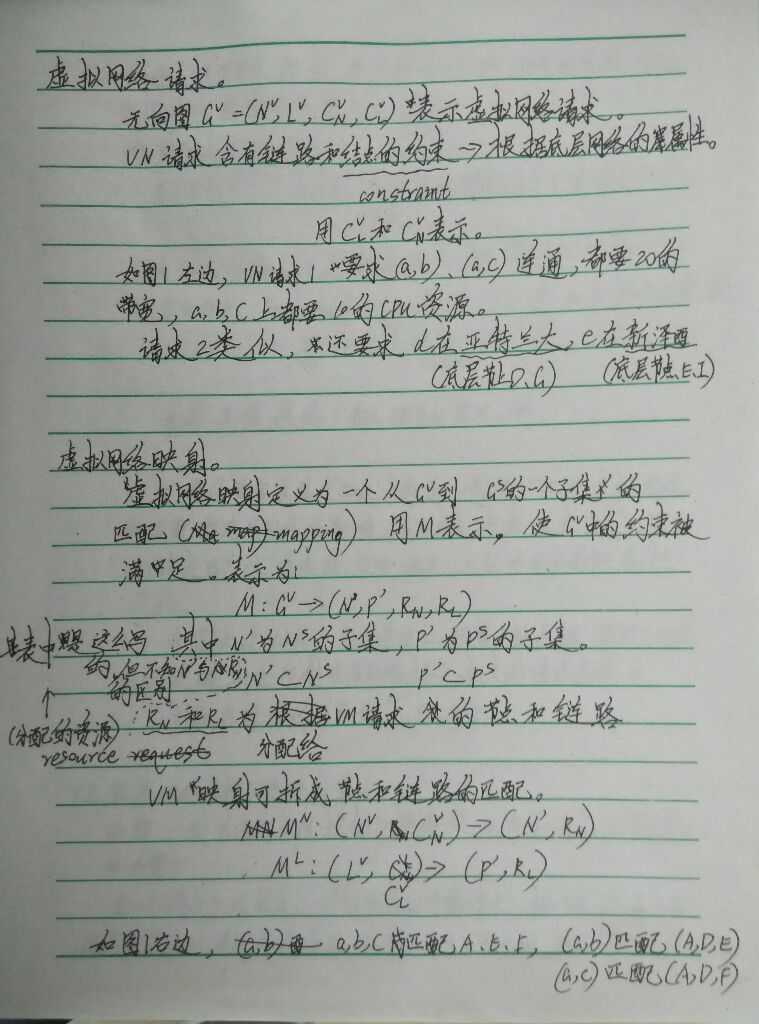 虚拟网络请求。
无向图 Gᵛ=(Nᵛ, Lᵛ, Cᵛ_N, Cᵛ_L) 表示虚拟网络请求。
VN请求 含有链路和结点的约束 → 根据底层网络的属性。
constraint
用 Cᵛ_L 和 Cᵛ_N 表示。
如图1左边, VN请求1 要求 (a,b)、(a,c) 连通, 都要20的
带宽, a,b,c上都要10的CPU资源。
请求2类似, 还要求 d在亚特兰大, e在新泽西
(底层节点D、G) (底层节点E、I)
虚拟网络映射。
虚拟网络映射定义为一个从Gᵛ到 Gˢ的一个子集的
匹配 (mapping) 用M表示, 使Gᵛ中的约束被
满足。表示为:
M: Gᵛ → (N', P', R_N, R_L)
表中这么写 其中 N'为Nˢ的子集, P'为Pˢ的子集。
的, 但不知N'与
的区别 N'⊂Nˢ P'⊂Pˢ
(分配的资源) R_N和R_L为 根据 VM请求 的节点和链路
resource request 分配给
VM 映射可拆成 节点和链路的匹配。
Mᴺ: (Nᵛ, Cᵛ_N) → (N', R_N)
Mᴸ: (Lᵛ, ) → (P', R_L)
Cᵛ_L
如图1右边, (a,b) a,b,c 匹配 A、E、F, (a,b)匹配(A,D,E)
(a,c)匹配(A,D,F)